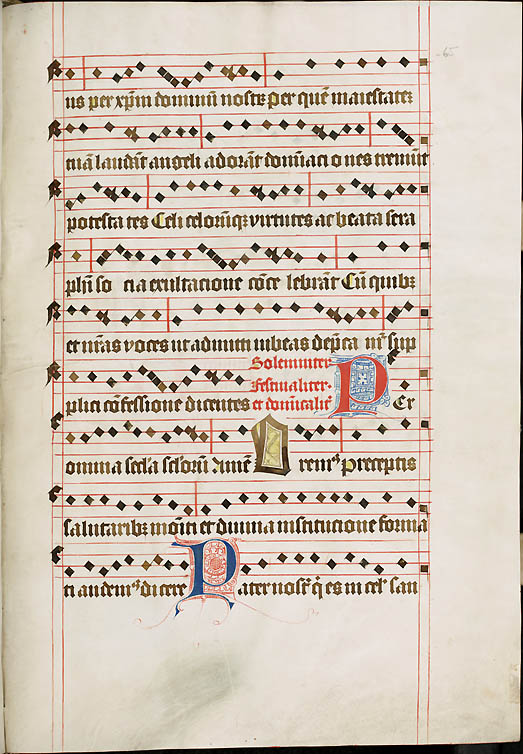 65
us per xp̄m dominū nostrꝫ per quē maiestateꝫ
tuā laudāt angeli adorāt domīaci o nes tremūt
potesta tes Celi celorūqꝫ virtutes ac beata sera
phȳ so cia exultacione cōce lebrāt Cū quibꝫ
et nr̄as voces ut admitti iubeas dep̄ca nr̄ sup
Solemniter
festiualiter.
et domīcalit̄
plici cōfessione dicentes P Er
omnia sec̄la sc̄lorū Amē O remꝰ preceptis
salutaribꝫ moīti et diuina institucione forma
ti audemꝰ dicere P ater nost̄ q̄ es in cel̄ san